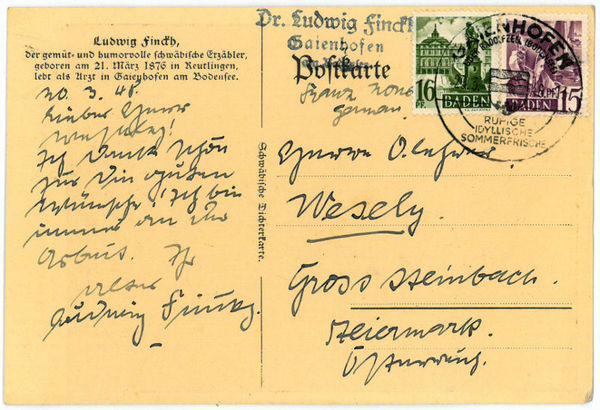 Ludwig Finckh,
der gemüt- und humorvolle schwäbische Erzähler,
geboren am 21. März 1876 in Reutlingen,
lebt als Arzt in Gaienhofen am Bodensee.
Dr. Ludwig Finckh
Gaienhofen
Postkarte
Franz. Zone
16
PF.
BADEN
PF.
BADEN
15
GAIENHOFEN
RUHIGE
IDYLLISCHE
SOMMERFRISCHE
20. 3. 48.
Lieber Herr
Wesely!
Ich danke schön
für die guten
Wünsche! Ich bin
immer an der
Arbeit. Ihr
alter
Ludwig Finckh.
Schwäbische Dichterkarte.
Herrn
Wesely.
Gross Steinbach.
Steiermark.
Österreich